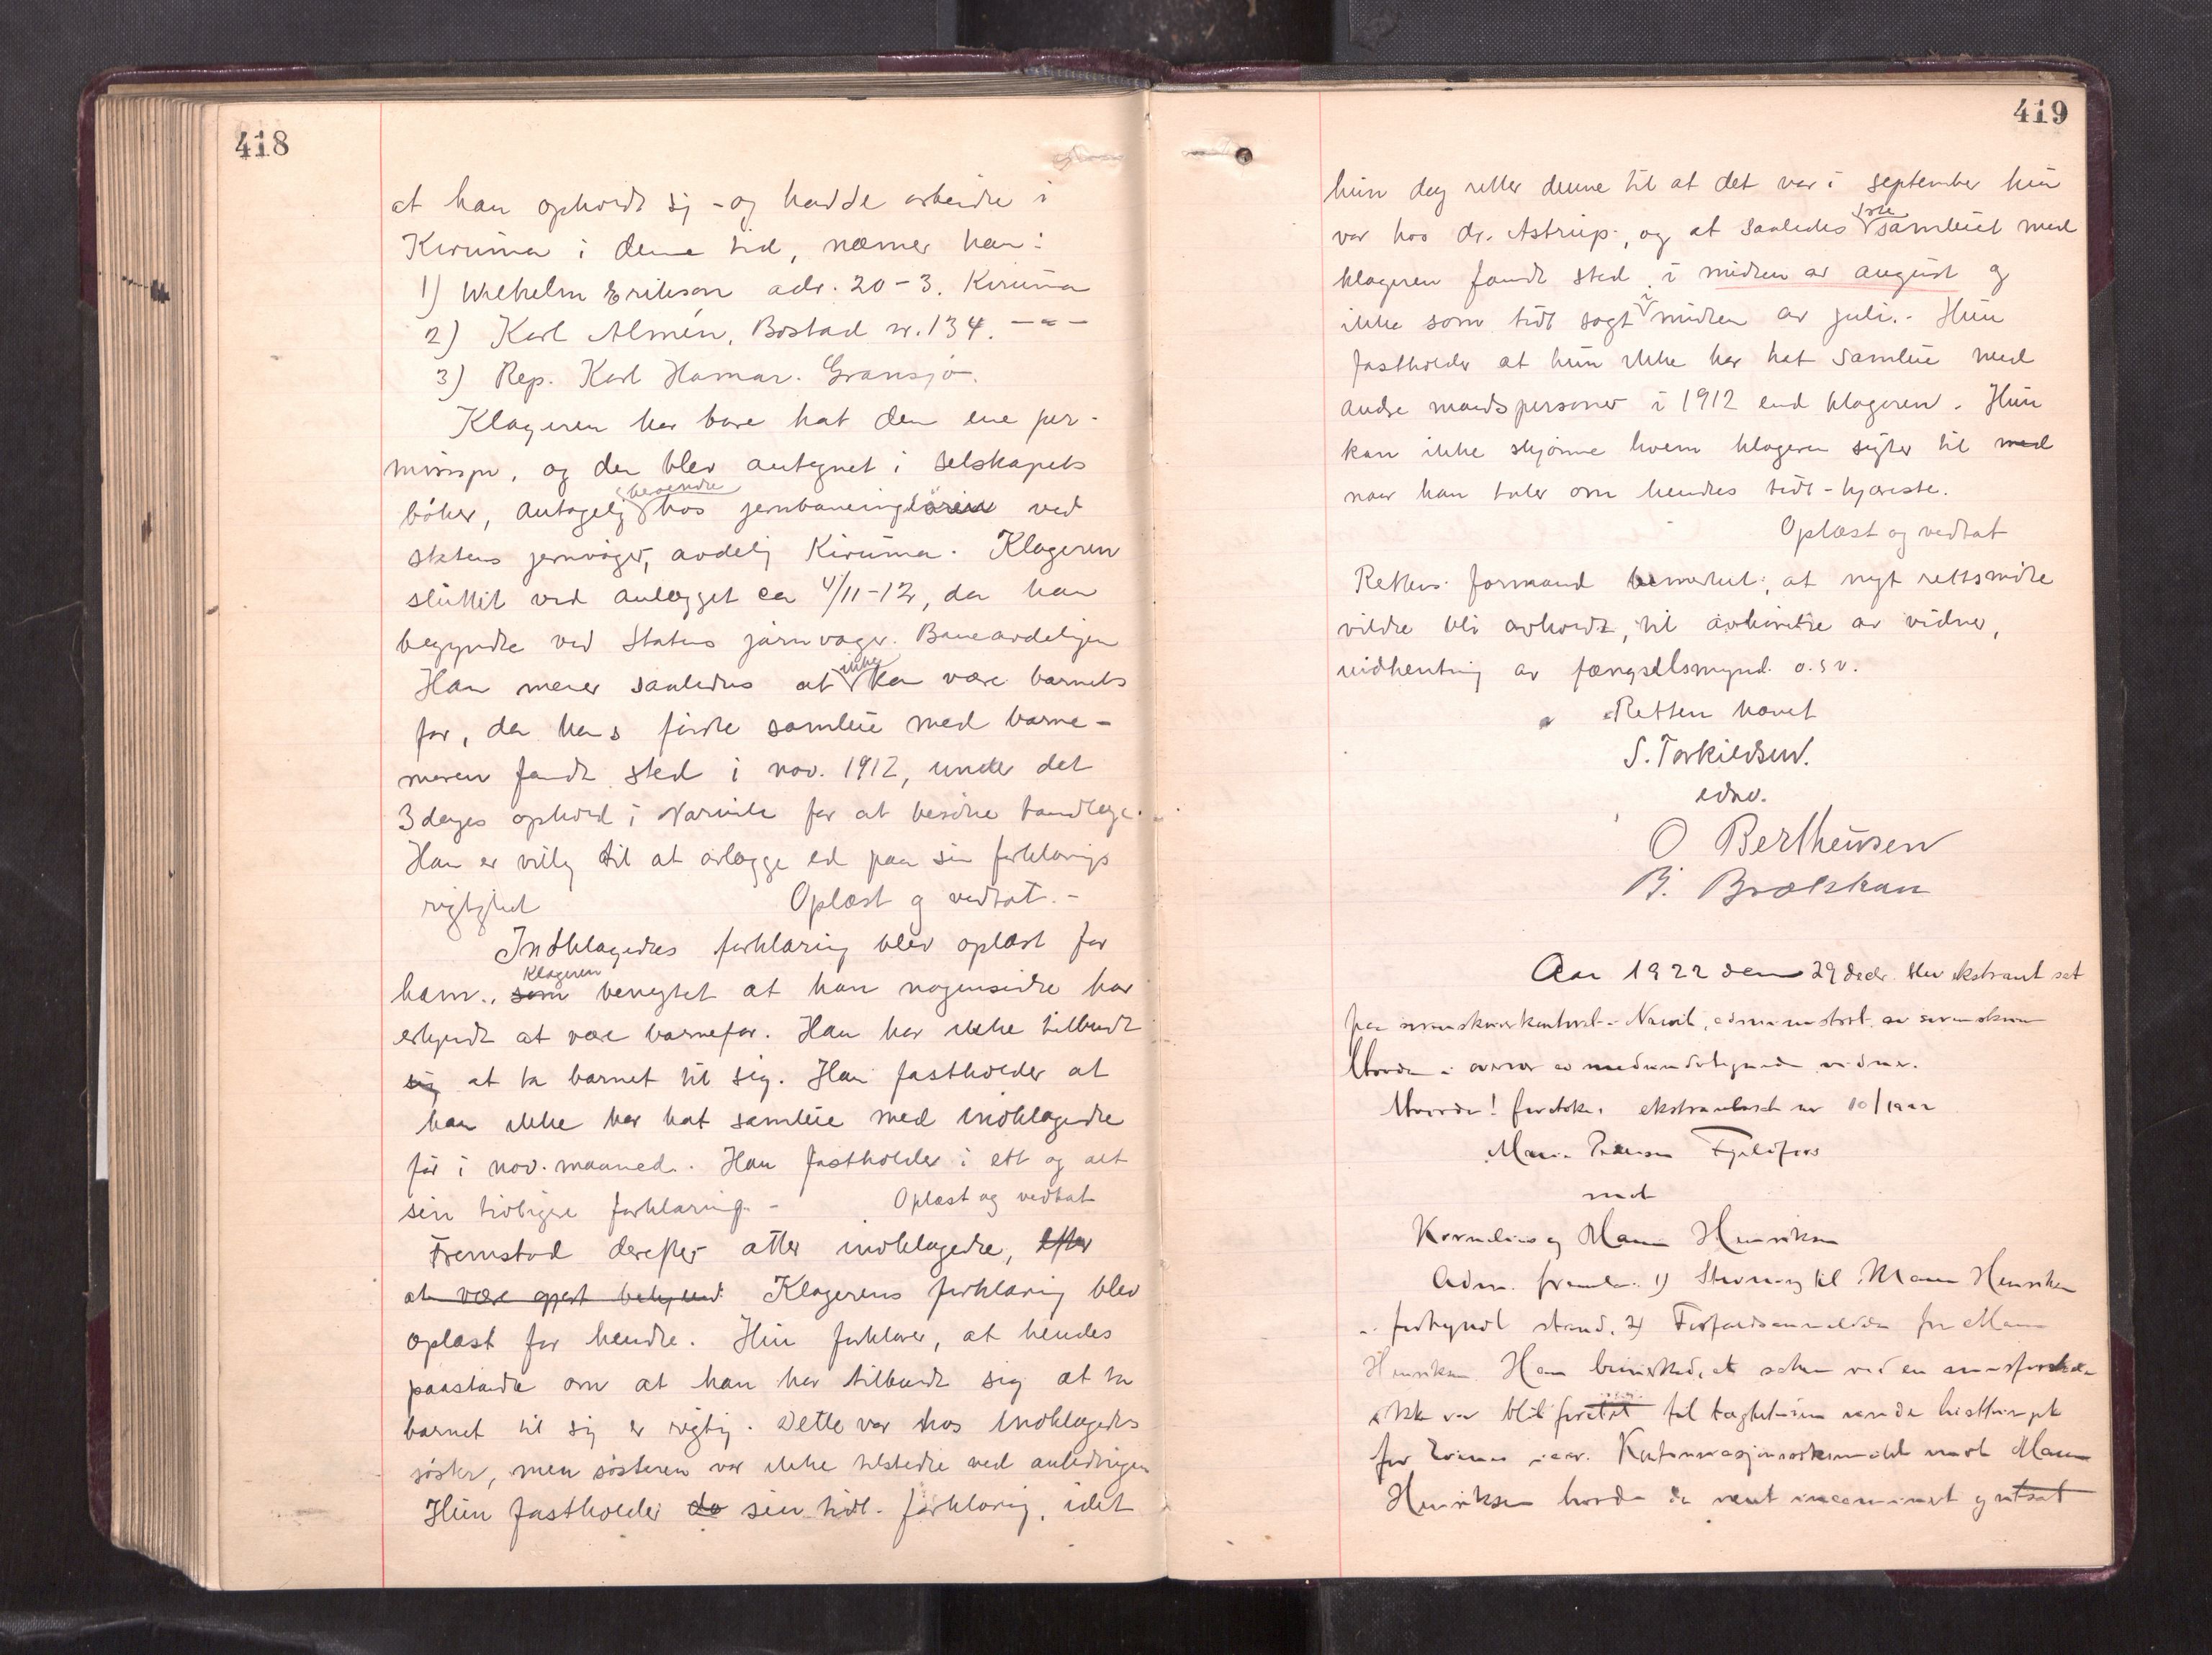 418
at han opholdt sig - og hadde arbeide i
Kiruna i denne tid, nævner han:
1) Wilhelm Erikson adr. 20-3. Kiruna
2) Karl Almén, Bostad nr. 134. -"-
3) Rep. Karl Hamar. Gransjø.
Klageren har bare hat den ene per-
missjon, og den blev antegnet i selskapets
bøker, antagelig beroende hos jernbaneing ved
statens jernvæger, avdelig Kiruna. Klageren
sluttet ved anlægget ca 4/11-12, da han
begyndte ved Statens järnvagar. Baneavdelingen
Han mener saaledes at ikke kan være barnets
far, da hans første samleie med barne-
moren fandt sted i nov. 1912, under det
3 dages ophold i Narvik for at besøke tandlæge.
Han er villig til at avlægge ed paa sin forklarings
rigtighet Oplæst og vedtat.-
Indklagedes forklaring blev oplæst for
ham., som Klageren benegtet at han nogensinde har
erkjendt at være barnefar. Han har ikke tilbudt
sig at ta barnet til sig. Han fastholder at
han ikke har hat samleie med indklagede
før i nov. maaned. Han fastholder i ett og alt
sin tidligere forklaring.- Oplæst og vedtat
Fremstod derefter atter indklagede, efter
at være gjort bekjend. Klagerens forklaring blev
oplæst for hende. Hun forklarer, at hendes
paastande om at han har tilbudt sig at ta
barnet til sig er rigtig. Dette var hos indklagedes
søster, men søsteren var ikke tilstede ved anledningen
Hun fastholder da sin tidl. forklaring, idet
419
hun dog retter denne til at det var i september hun
var hos dr. Astrup, og at saaledes 1ste samleiet med
klageren fandt sted i midten av august og
ikke som tidl sagt i midten av juli.- Hun
fastholder at hun ikke har hat samleie med
andre mandspersoner i 1912 end klageren. Hun
kan ikke skjønne hvem klageren sigter til med
naar han taler om hendes tidl-kjæreste.
Oplæst og vedtat
Rettens formand bemerket, at nyt rettsmøte
vilde bli avholdt, til avhørelse av vidner,
indhenting av fængselsmynd. o.s v.
Retten hævet
S. Torkildsen.
edsv.
O Bertheusen
B.
Aar 1922 den 29 decbr. blev ekstraret sat
paa sorenskriverkontoret i Narvik, administrert av sorenskriver
i overvær av medundertegnede vidner.
Hvorda! foretokes ekstraretssak nr 10/1922
Fjeldfors
mot
Kornelius og Henriksen
Adm. fremla. 1) Stevning til Henriksen
i forkyndt stand. 2) for
Henriksen. Han bemerked, at saken ved en
ikke var blit foretat til
for mot
Henriksen burde da været og utsat